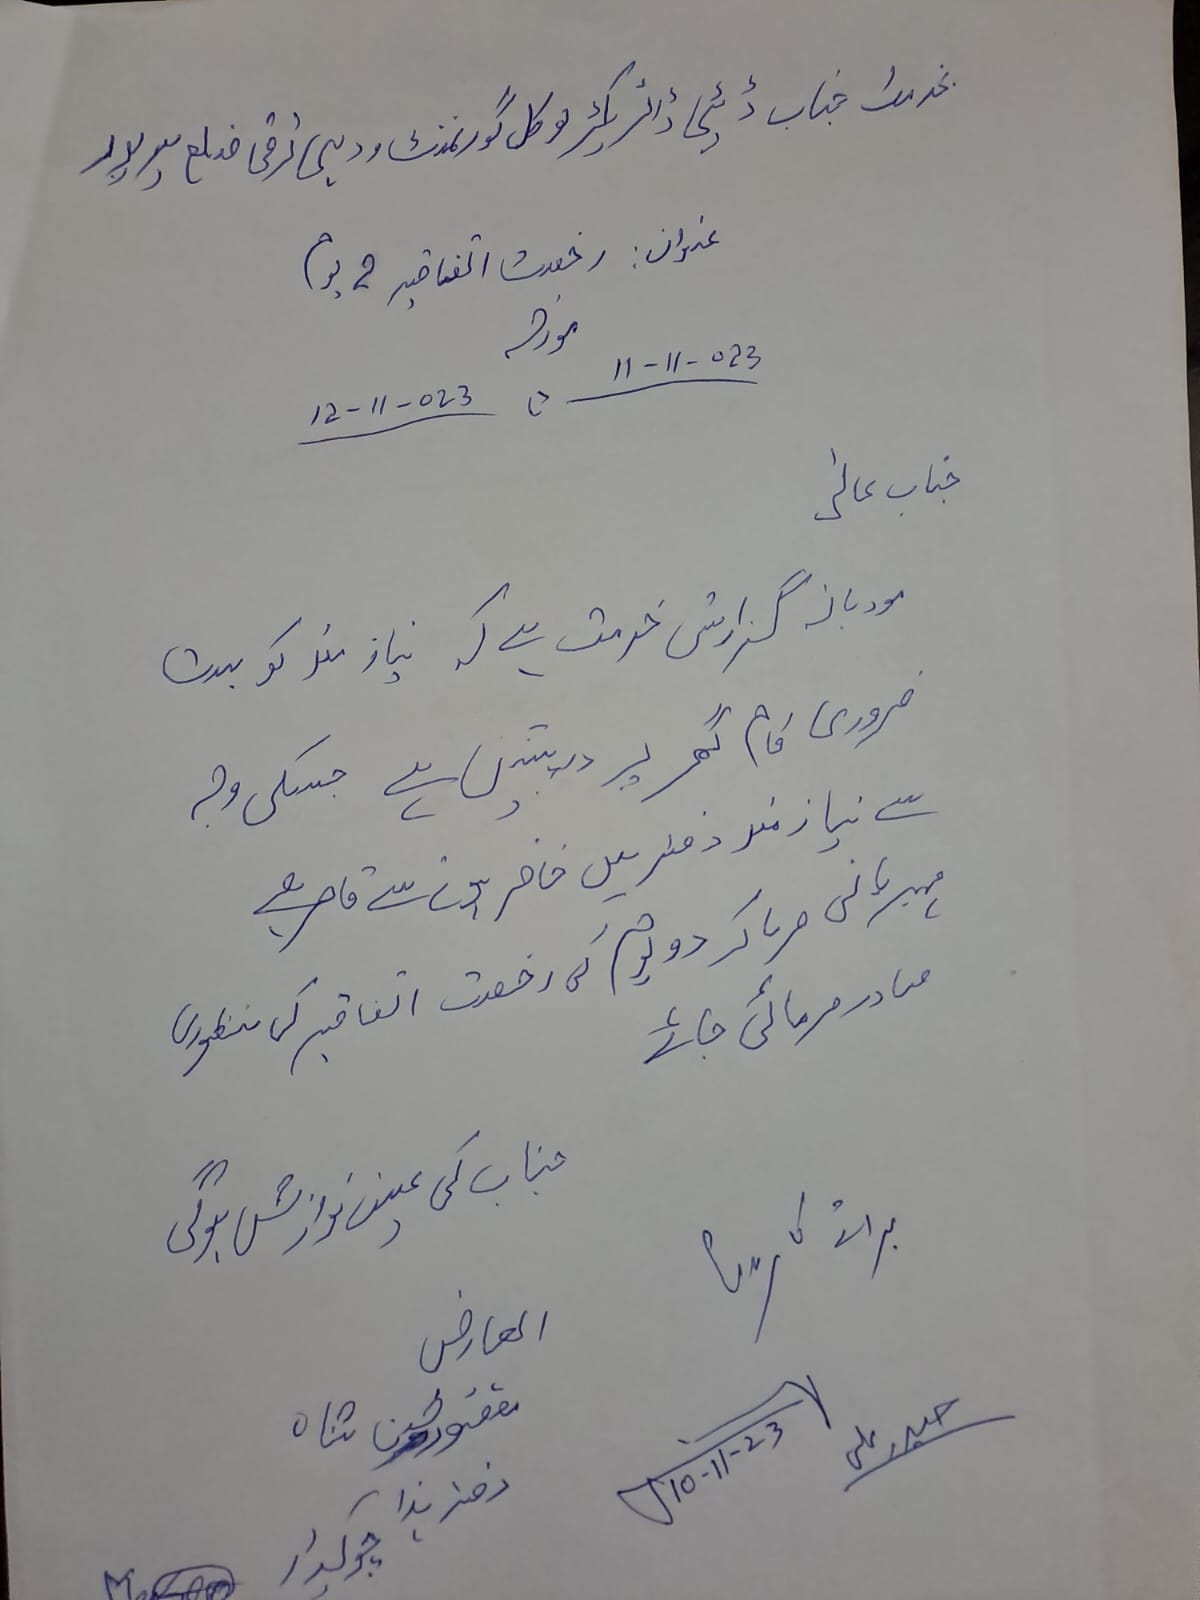 بخدمت جناب ڈپٹی ڈائریکٹر لوکل گورنمنٹ و دیہی ترقی ضلع میرپور
عنوان: رخصت اتفاقیہ 2 یوم
مورخہ
11-11-023 تا 12-11-023
جناب عالی
مودبانہ گزارش خدمت ہے کہ نیاز مند کو بہت
ضروری کام گھر پر درپیش ہے جسکی وجہ
سے نیاز مند دفتر میں حاضر ہونے سے قاصر ہے
مہربانی فرما کر دو یوم کی رخصت اتفاقیہ کی منظوری
صادر فرمائی جائے
جناب کی عین نوازش ہوگی
العارض
شاہ
دفتر ہذا
چوکیدار
برائے
حیدر علی
10-11-23